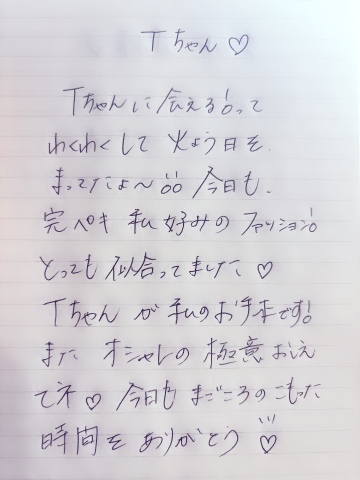 Tちゃん♡
Tちゃんに会える!!って
わくわくして 火よう日を
まってたよ〜!!! 今日も
完ペキ 私好みの ファッション!!
とっても 似合ってました♡
Tちゃん が 私のお手本です!
また オシャレの 極意 おしえ
てネ♡ 今日も まごころの こもった
時間を ありがとう♡